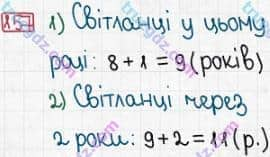 157 1) Світланці у цьому
році: 8+1=9(років)
2) Світланці через
2 роки: 9+2=11(р.)